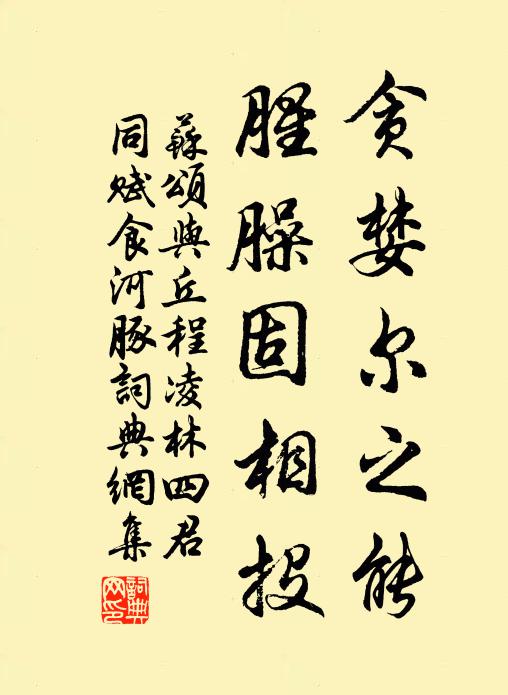 贪婪尔之能
腥臊固相投
蘇頌與丘程凌林四君
同賦食河豚詞典網集
詞典網印